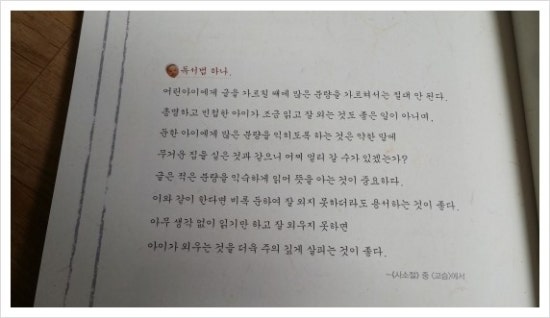 독서법 하나.
어린아이에게 글을 가르칠 때에 많은 분량을 가르쳐서는 절대 안 된다.
총명하고 민첩한 아이가 조금 읽고 잘 외는 것도 좋은 일이 아니며,
둔한 아이에게 많은 분량을 익히도록 하는 것은 약한 말에
무거운 짐을 실은 것과 같으니 어찌 멀리 갈 수가 있겠는가?
글은 적은 분량을 익숙하게 읽어 뜻을 아는 것이 중요하다.
이와 같이 한다면 비록 둔하여 잘 외지 못하더라도 용서하는 것이 좋다.
아무 생각 없이 읽기만 하고 잘 외우지 못하면
아이가 외우는 것을 더욱 주의 깊게 살피는 것이 좋다.
-《사소절》 중 〈교습〉에서